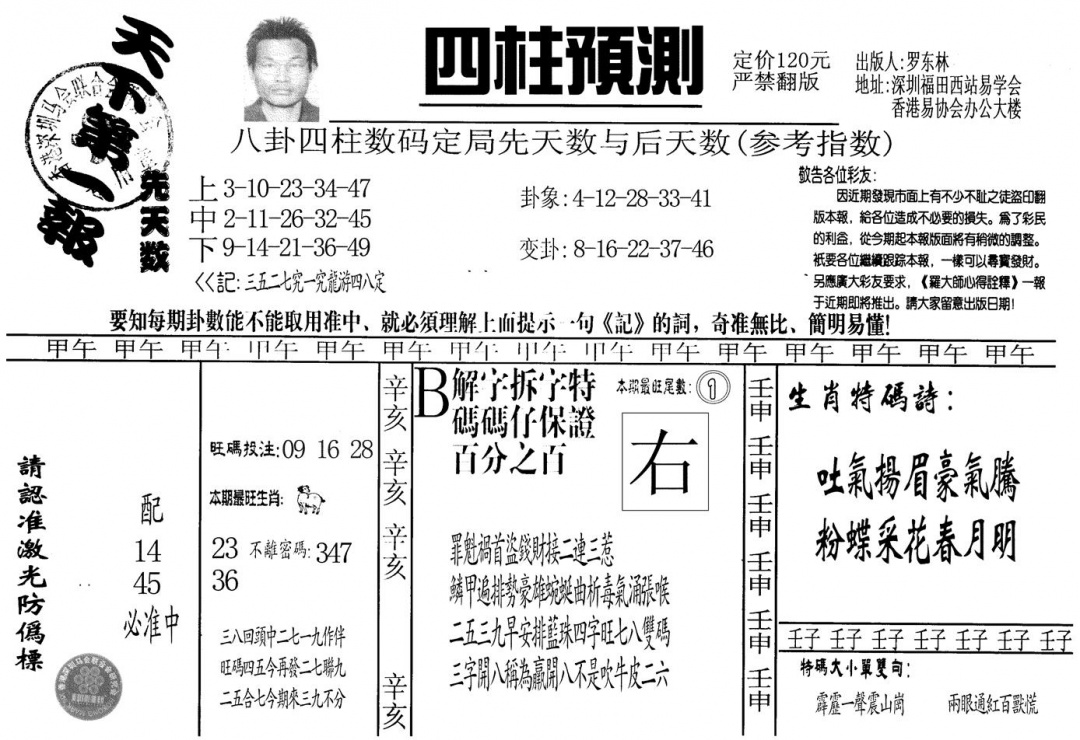 天下第一報
四柱預測
定价120元
严禁翻版
出版人:罗东林
地址:深圳福田西站易学会
香港易协会办公大楼
八卦四柱数码定局先天数与后天数(参考指数)
先天数
上3-10-23-34-47
中2-11-26-32-45
下9-14-21-36-49
<<記:三五二七究一究龍游四八定
卦象:4-12-28-33-41
变卦:8-16-22-37-46
敬告各位彩友:
因近期發現市面上有不少不耻之徒盜印翻
版本報,給各位造成不必要的損失。爲了彩民
的利益,從今期起本報版面將有稍微的調整。
衹要各位繼續跟踪本報,一樣可以尋寶發財。
另應廣大彩友要求,《羅大師心得詮釋》一報
于近期即將推出。請大家留意出版日期!
要知每期卦數能不能取用准中、就必須理解上面提示一句《記》的詞,奇准無比、簡明易懂!
甲午 甲午 甲午 甲午 甲午 甲午 甲午 甲午 甲午 甲午 甲午 甲午 甲午 甲午 甲午
請認准激光防僞標
配
14
45
必准中
旺碼投注:09 16 28
本期最旺生肖:
23 不離密碼:347
36
三八回頭中二七一九作伴
旺碼四五今再發二七聯九
二五合七今期來三九不分
辛亥
辛亥
辛亥
辛亥
B解字拆字特
碼碼仔保證
百分之百
本期最旺尾數:1
右
罪魁禍首盜錢財接二連三惹
鱗甲遍排勢豪雄蜿蜒曲折毒氣涌張喉
二五三九早安排藍珠四字旺七八雙碼
三字開八稱為贏開八不是吹牛皮二六
壬申
壬申
壬申
壬申
壬申
壬申
生肖特碼詩:
吐氣揚眉豪氣騰
粉蝶采花春月明
壬子 壬子 壬子 壬子 壬子 壬子 壬子
特碼大小單雙句:
霹靂一聲震山崗 兩眼通紅百獸慌